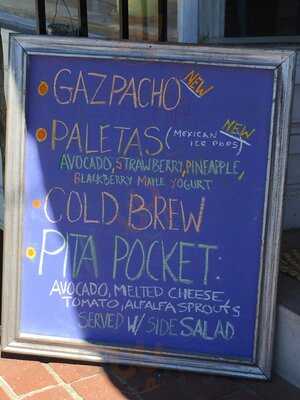 GAZPACHO NEW
PALETAS (MEXICAN ICE POPS) NEW
AVOCADO, STRAWBERRY, PINEAPPLE,
BLACKBERRY MAPLE YOGURT
COLD BREW
PITA POCKET:
AVOCADO, MELTED CHEESE
TOMATO, ALFALFA SPROUTS
SERVED W/ SIDE SALAD